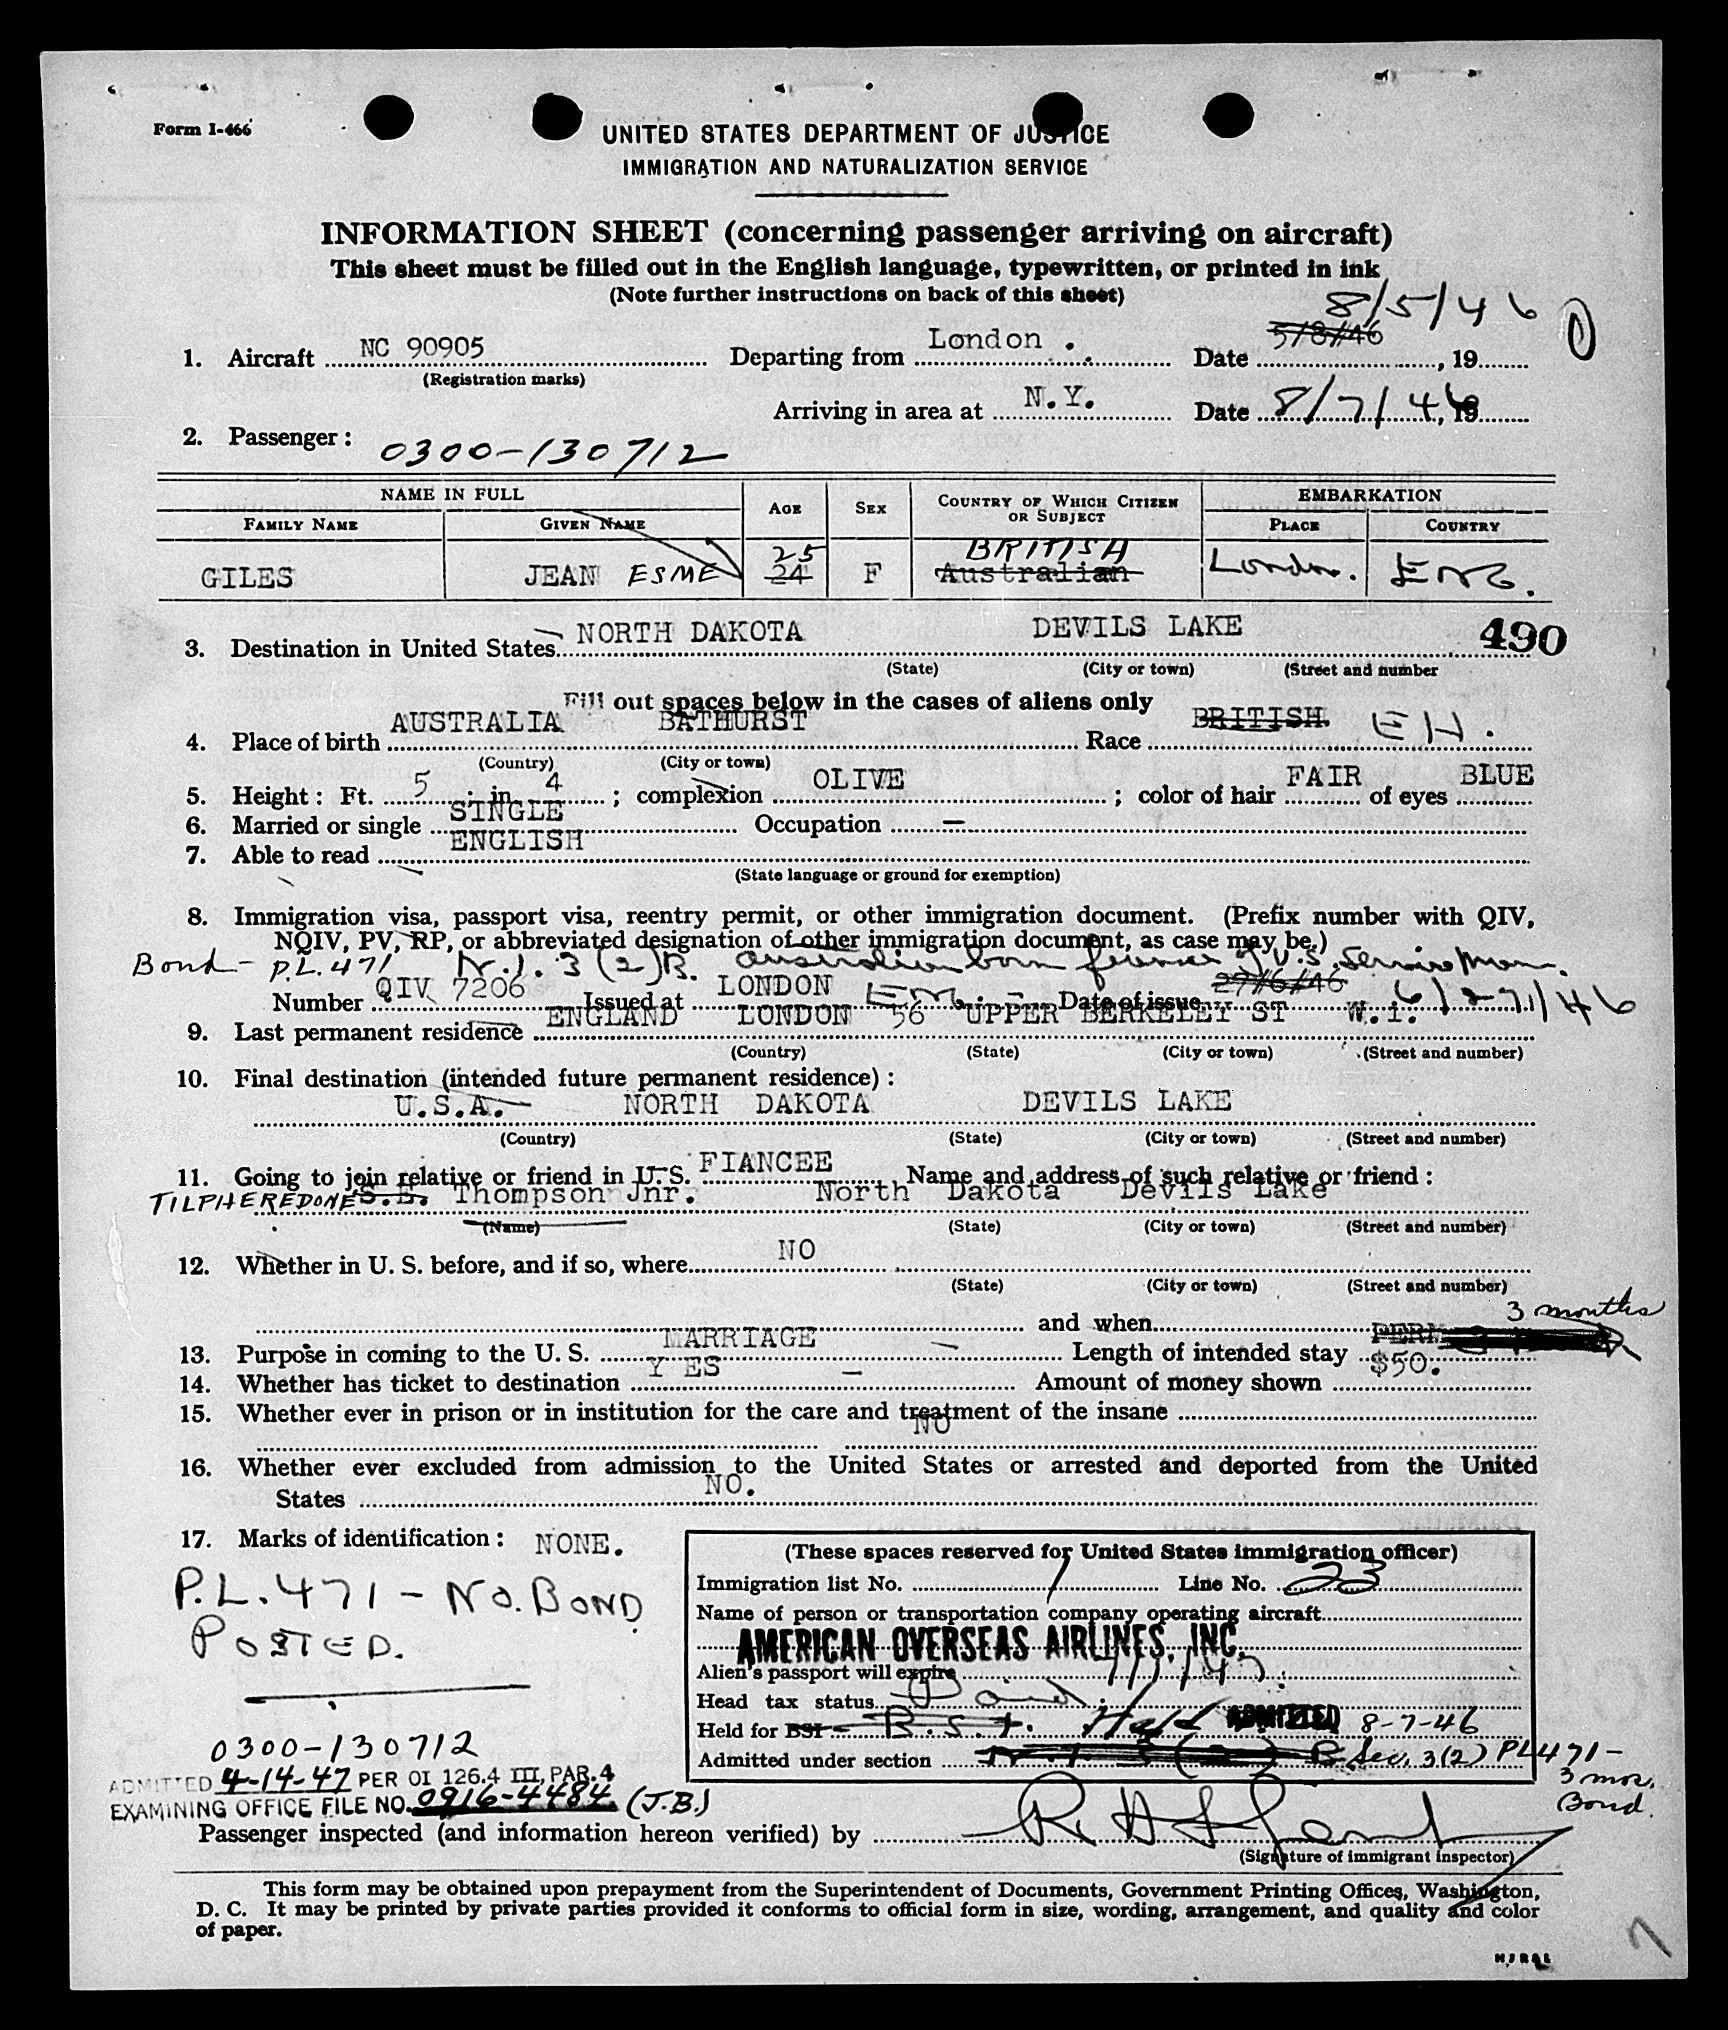 Form I-466
UNITED STATES DEPARTMENT OF JUSTICE
IMMIGRATION AND NATURALIZATION SERVICE
INFORMATION SHEET (concerning passenger arriving on aircraft)
This sheet must be filled out in the English language, typewritten, or printed in ink
(Note further instructions on back of this sheet)
8/5/46
1. Aircraft NC 90905 Departing from London . Date 5/8/46, 19
(Registration marks)
Arriving in area at N.Y. Date 8/7/46, 19
2. Passenger: 0300-130712
NAME IN FULL AGE SEX COUNTRY OF WHICH CITIZEN OR SUBJECT EMBARKATION
FAMILY NAME GIVEN NAME PLACE COUNTRY
25 BRITISH
GILES JEAN ESME 24 F Australian London. ENG.
3. Destination in United States NORTH DAKOTA DEVILS LAKE 490
(State) (City or town) (Street and number
Fill out spaces below in the cases of aliens only
4. Place of birth AUSTRALIA BATHURST Race BRITISH EH.
(Country) (City or town)
5. Height: Ft. 5 ; in 4 ; complexion OLIVE ; color of hair FAIR of eyes BLUE
6. Married or single SINGLE Occupation —
7. Able to read ENGLISH
(State language or ground for exemption)
8. Immigration visa, passport visa, reentry permit, or other immigration document. (Prefix number with QIV,
NQIV, PV, RP, or abbreviated designation of other immigration document, as case may be.)
Bond - P.L. 471 N.I. 3(2)B. Australian born fiancee of U.S. Service Man.
Number QIV 7206 Issued at LONDON ENG. - Date of issue 27/6/46 6/27/46
9. Last permanent residence ENGLAND LONDON 56 UPPER BERKELEY ST W.1.
(Country) (State) (City or town) (Street and number)
10. Final destination (intended future permanent residence):
U.S.A. NORTH DAKOTA DEVILS LAKE
(Country) (State) (City or town) (Street and number)
11. Going to join relative or friend in U.S. FIANCEE Name and address of such relative or friend:
TILPHEREDONE S.E. Thompson Jnr. North Dakota Devils Lake
(Name) (State) (City or town) (Street and number)
12. Whether in U. S. before, and if so, where NO
(State) (City or town) (Street and number)
and when 3 months
13. Purpose in coming to the U. S. MARRIAGE Length of intended stay PERM
14. Whether has ticket to destination Y ES — Amount of money shown $50.
15. Whether ever in prison or in institution for the care and treatment of the insane
NO
16. Whether ever excluded from admission to the United States or arrested and deported from the United
States NO.
17. Marks of identification: NONE.
P.L. 471 - NO. BOND
POSTED.
0300-130712
ADMITTED 4-14-47 PER OI 126.4 III, PAR. 4
EXAMINING OFFICE FILE NO. 0916-4484 (J.B.)
(These spaces reserved for United States immigration officer)
Immigration list No. 1 Line No. 23
Name of person or transportation company operating aircraft
AMERICAN OVERSEAS AIRLINES, INC.
Alien's passport will expire 1/1/47.
Head tax status Paid.
Held for BSI - B.S.I. Held ADMITTED 8-7-46
Admitted under section N.I. 3(2) B Sec. 3(2) PL471-
3 mos.
Bond.
Passenger inspected (and information hereon verified) by
(Signature of immigrant inspector)
This form may be obtained upon prepayment from the Superintendent of Documents, Government Printing Offices, Washington,
D. C. It may be printed by private parties provided it conforms to official form in size, wording, arrangement, and quality and color
of paper.